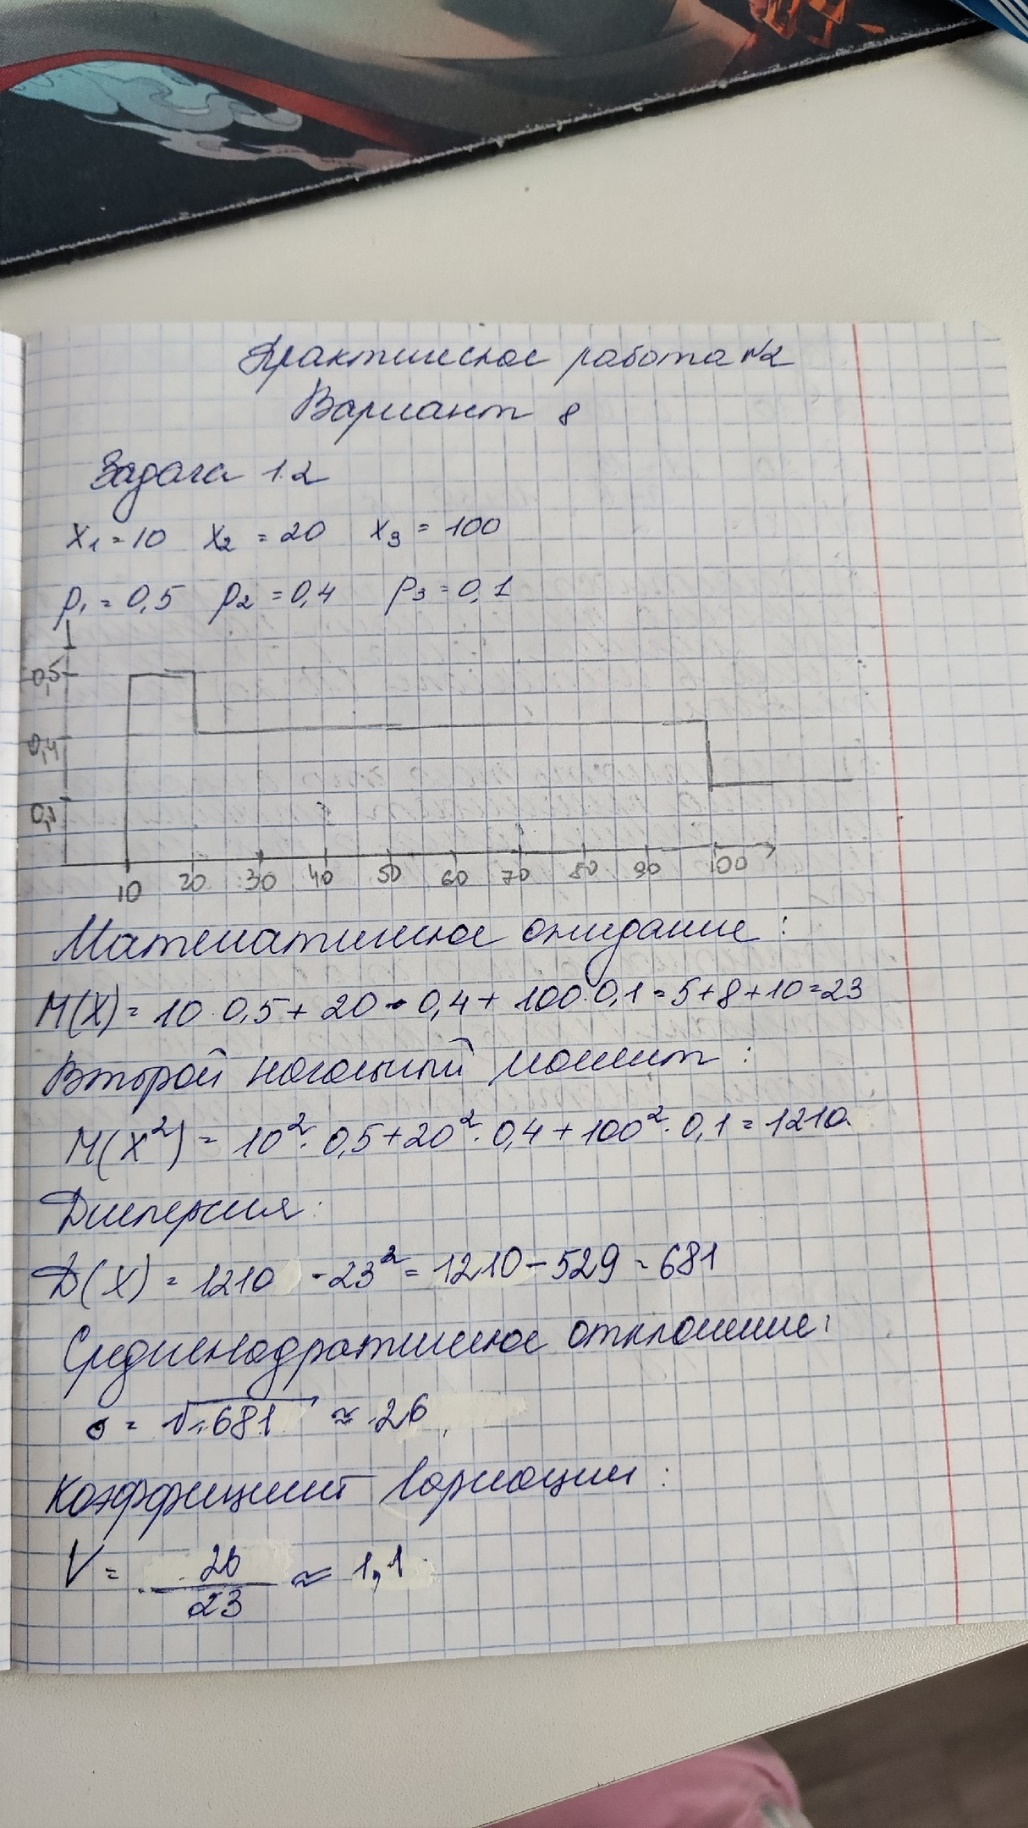 Практическое работа №2
Вариант 8
Задача 1.2
x₁ = 10 x₂ = 20 x₃ = 100
p₁ = 0,5 p₂ = 0,4 p₃ = 0,1
1
0,5
0,4
0,1
10 20 30 40 50 60 70 80 90 100
Математическое ожидание:
M(X) = 10 · 0,5 + 20 · 0,4 + 100 · 0,1 = 5 + 8 + 10 = 23
Второй начальный момент:
M(X²) = 10² · 0,5 + 20² · 0,4 + 100² · 0,1 = 1210
Дисперсия:
D(X) = 1210 - 23² = 1210 - 529 = 681
Среднеквадратическое отклонение:
σ = √681 ≈ 26
Коэффициент вариации:
V = 26/23 ≈ 1,1